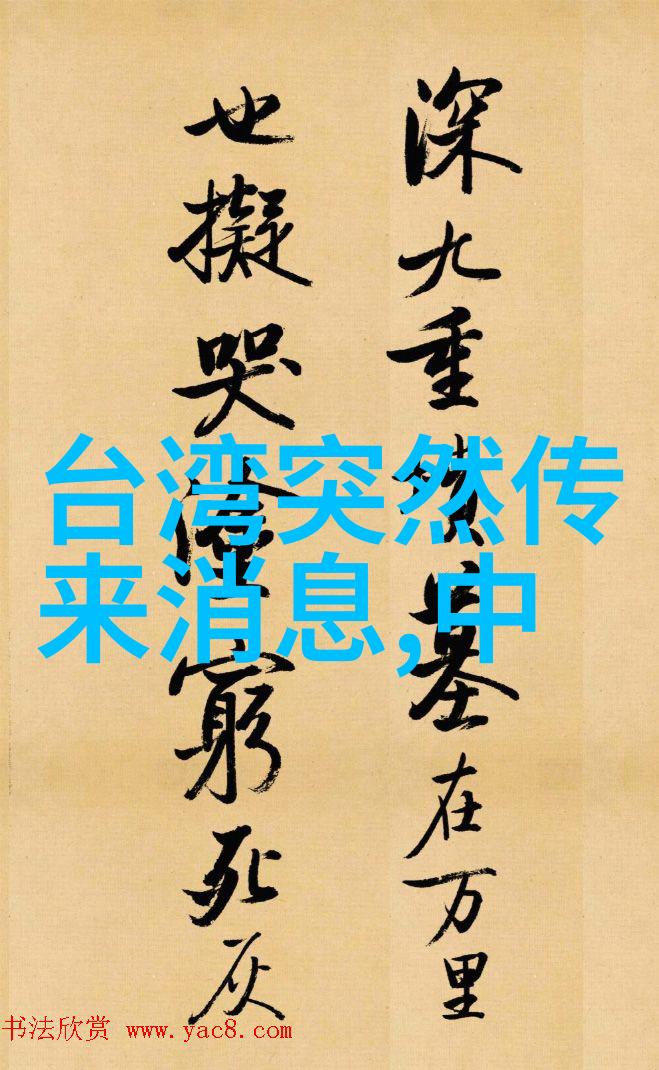 深九重墳墓在万里
也擬哭塗窮死灰
台湾突然传
来消息,中
书法欣赏 www.yac8.com